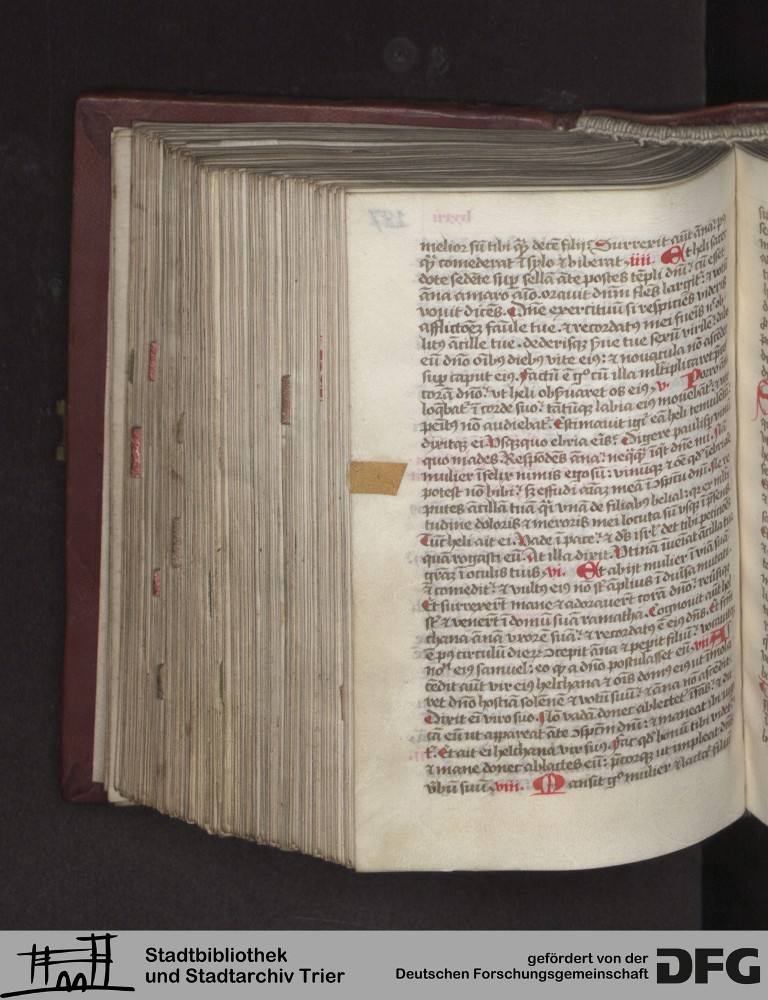 melior sū tibi q̄ȝ decē filij. Surrexit aūt āna: pꝰ
q̄ȝ comederat ī sylo ⁊ biberat. iiii. Et heli sacer
dote sedēte suꝑ sellā āte postes tēpli dn̄i: cū eēt
āna amaro aīo. orauit dn̄m flēs largit̄: ⁊ votū
vouit dicēs. Dn̄e exercituū si respiciēs videris
afflictōeȝ faūle tue. ⁊ recordatꝰ mei fueis
litꝰ ācille tue. dederisqȝ ẜue tue sexū virile: dabo
eū dn̄o oībȝ diebȝ vite eiꝰ: ⁊ nouacula nō ascēdet
suꝑ caput eiꝰ. Factū ē gͦ cū illa ml̄tiplicaret p̄ces
corā dn̄o: ut heli obẜuaret os eiꝰ. v. Porro āna
loq̄bat̄ ī corde suo: tātūqȝ labia eiꝰ mouebāt̄: ⁊ vox
penitꝰ nō audiebat̄. Estimauit igit̄ eā heli temulētā:
dixitqȝ ei. Vsqȝquo ebria eīs? Digere paulisꝑ vinū
quo mades. Respōdēs āna: neq̄qȝ īqt dn̄e mi. Nā
mulier īfelix nimis ego sū: vinūqȝ ⁊ oē qd̓ īebriare
potest nō bibi: sȝ effudi aīaȝ meā ī ɔspc̄tu dn̄i. Ne re
putes ācillā tuā q̄i vnā de filiabȝ belial: qꝛ ex ml̄ti
tudine doloris ⁊ meroris mei locuta sū vsqȝ ī p̄sens.
Tūc heli ait ei. Vade ī pace: ⁊ dꝰ isrl̓ det tibi petitiōeȝ
quā rogasti eū. At illa dixit. Vtinā īueiat ācilla tua
gr̄aȝ ī oculis tuis. vi. Et abijt mulier ī viā suā
⁊ comedit: ⁊ vultꝰ eiꝰ nō st̄ āplius ī diuīsa mutati.
Et surrexerūt mane ⁊ adorauerūt corā dn̄o: reūsiqȝ
st̄ ⁊ venerūt ī domū suā ramatha. Cognouit aūt hel
chana ānā vxorē suā: ⁊ recordatꝰ ē eiꝰ dn̄s. Et fm̄
ē pꝰ circulū dieꝝ ɔcepit āna ⁊ peperit filiū: vocauitqȝ
noē eiꝰ samuel: eo qȝ a dn̄o postulasset eū. vii. As
cēdit aūt vir eiꝰ helchana ⁊ oīs domꝰ eiꝰ ut īmola
ret dn̄o hostiā solēnē ⁊ votū suū: ⁊ āna nō ascēdit.
Dixit eī viro suo. Nō vadā donec ablactet̄ īfās: ⁊ du
cā eū ut appareat āte ɔspc̄m dn̄i: ⁊ maneat ibi iugi
t̄. Et ait ei helchana vir suꝰ. Fac qd̓ bonū tibi videt̄
⁊ mane donec ablactes eū: p̄corqȝ ut impleat dn̄s
v̄bū suū. viii. Mansit gͦ mulier ⁊ lactat̄ filiū
Stadtbibliothek
und Stadtarchiv Trier
gefördert von der
Deutschen Forschungsgemeinschaft
DFG